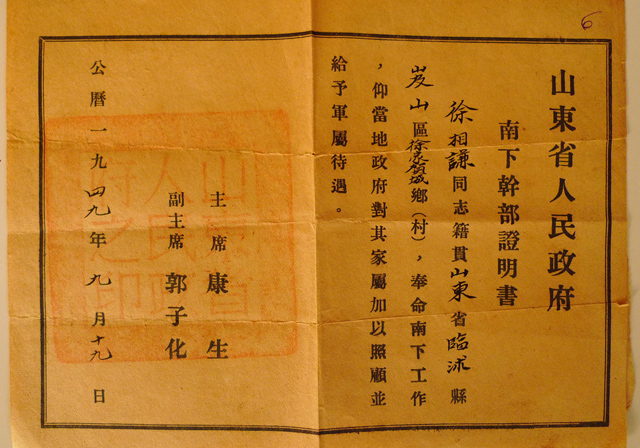 6
山東省人民政府
南下幹部證明書
徐相謙同志籍貫山東省臨沭縣
岌山區徐家城鄉（村），奉命南下工作
，仰當地政府對其家屬加以照顧並
給予軍屬待遇。
主席 康生
副主席 郭子化
山東省人民政府之印
公曆一九四九年九月十九日